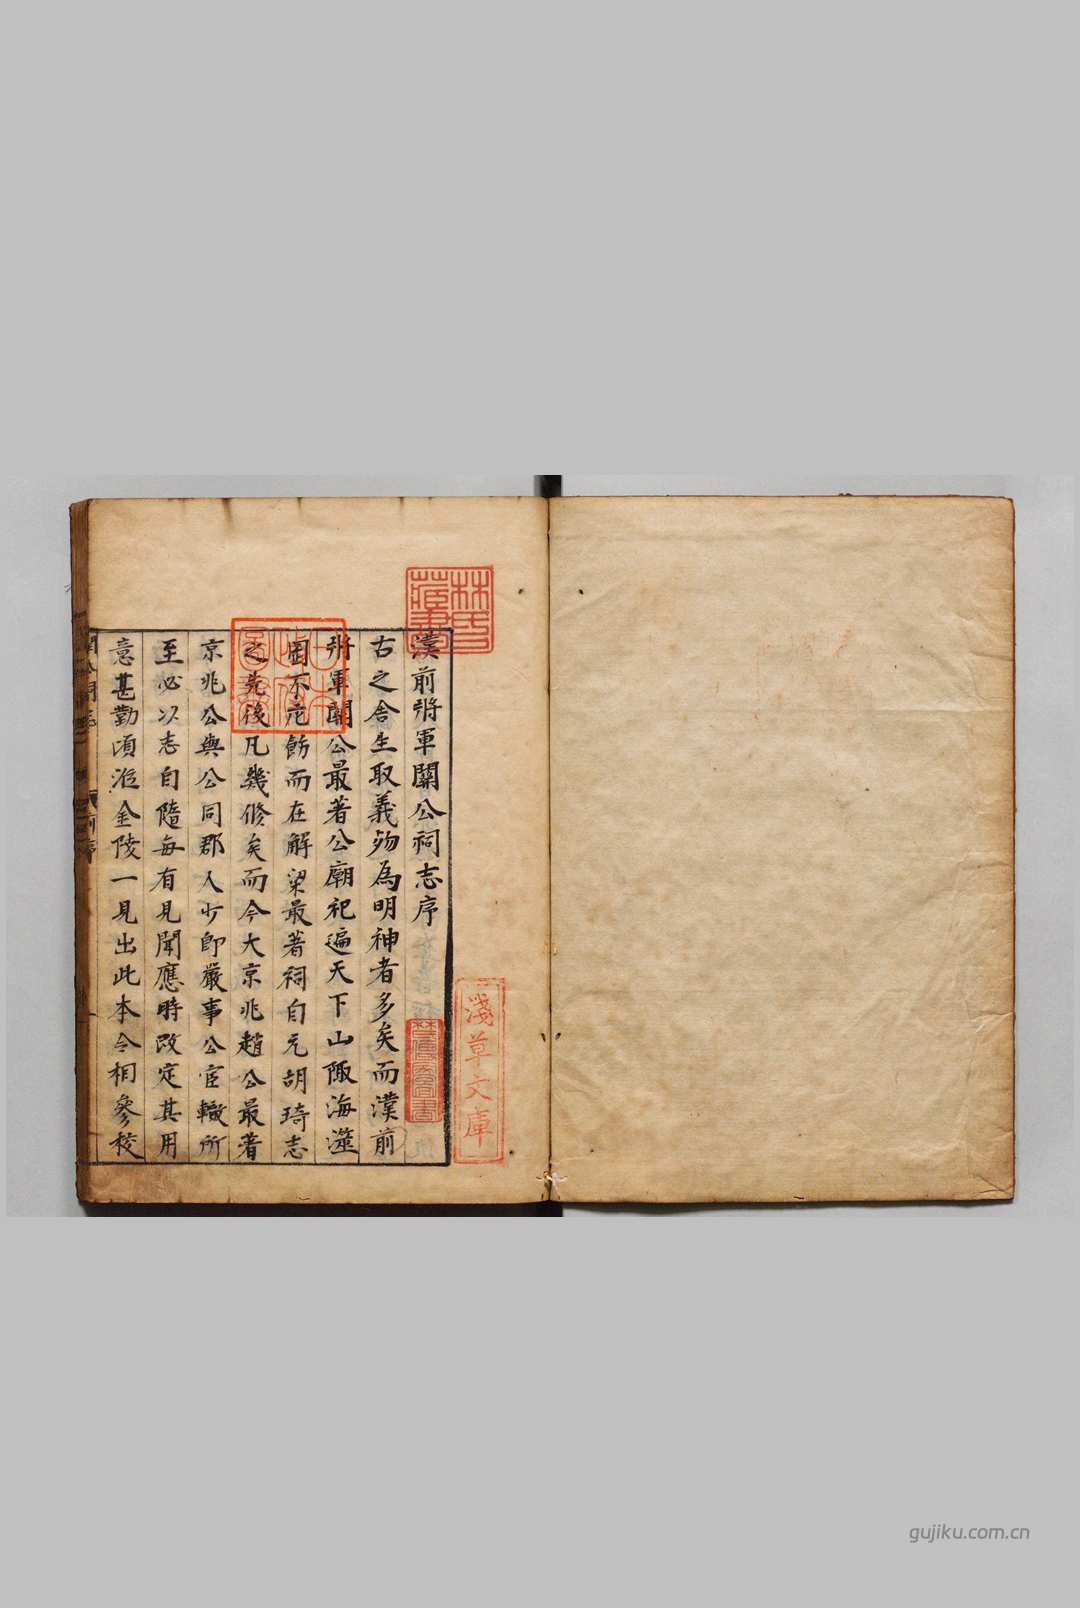 漢前將軍關公祠志序
古之舍生取義歿為明神者多矣而漢前
將軍關公最著公廟祀遍天下山陬海澨
罔不庀飭而在解梁最著祠自元胡琦志
之先後凡幾修矣而今大京兆趙公最著
京兆公與公同郡人少即嚴事公宦轍所
至必以志自隨每有見聞應時改定其用
意甚勤頃涖金陵一見出此本令相參校
林氏藏書
日本政府圖書
淺草文庫
gujiku.com.cn